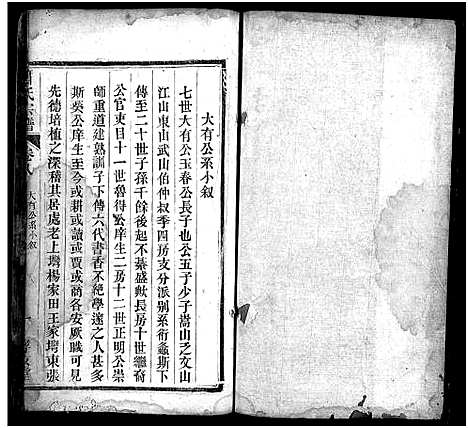 大有公系小叙
七世大有公玉春公長子也公玉于少子嵩山之文山
江山東山武山伯仲叔季四房支分派别系衍螽斯下
傳至二十世子孫千餘後起不綦盛歟長房十世繼裔
公官吏目十一世魯得公庠生二房十二世正明公崇
師重道建熟訓子下傳六代書香不絶學邃之人甚多
斯葵公庠生至今或耕或讀或賈或商各安厥職可見
先德培植之深稽其居處老上塆楊家田王家塆東張
氏宗譜
大有公系小叙